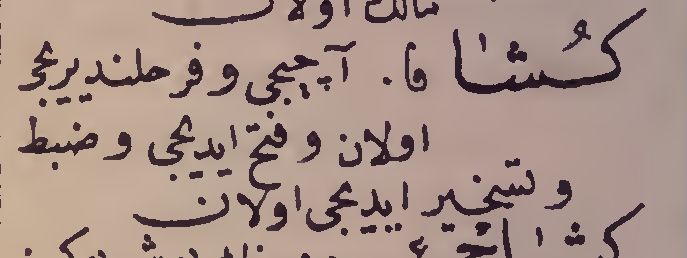 مالك اولان
كُشا فا. آچيجى و فرحلنديريجى
اولان و فتح ايديجى و ضبط
و تسخير ايديجى اولان